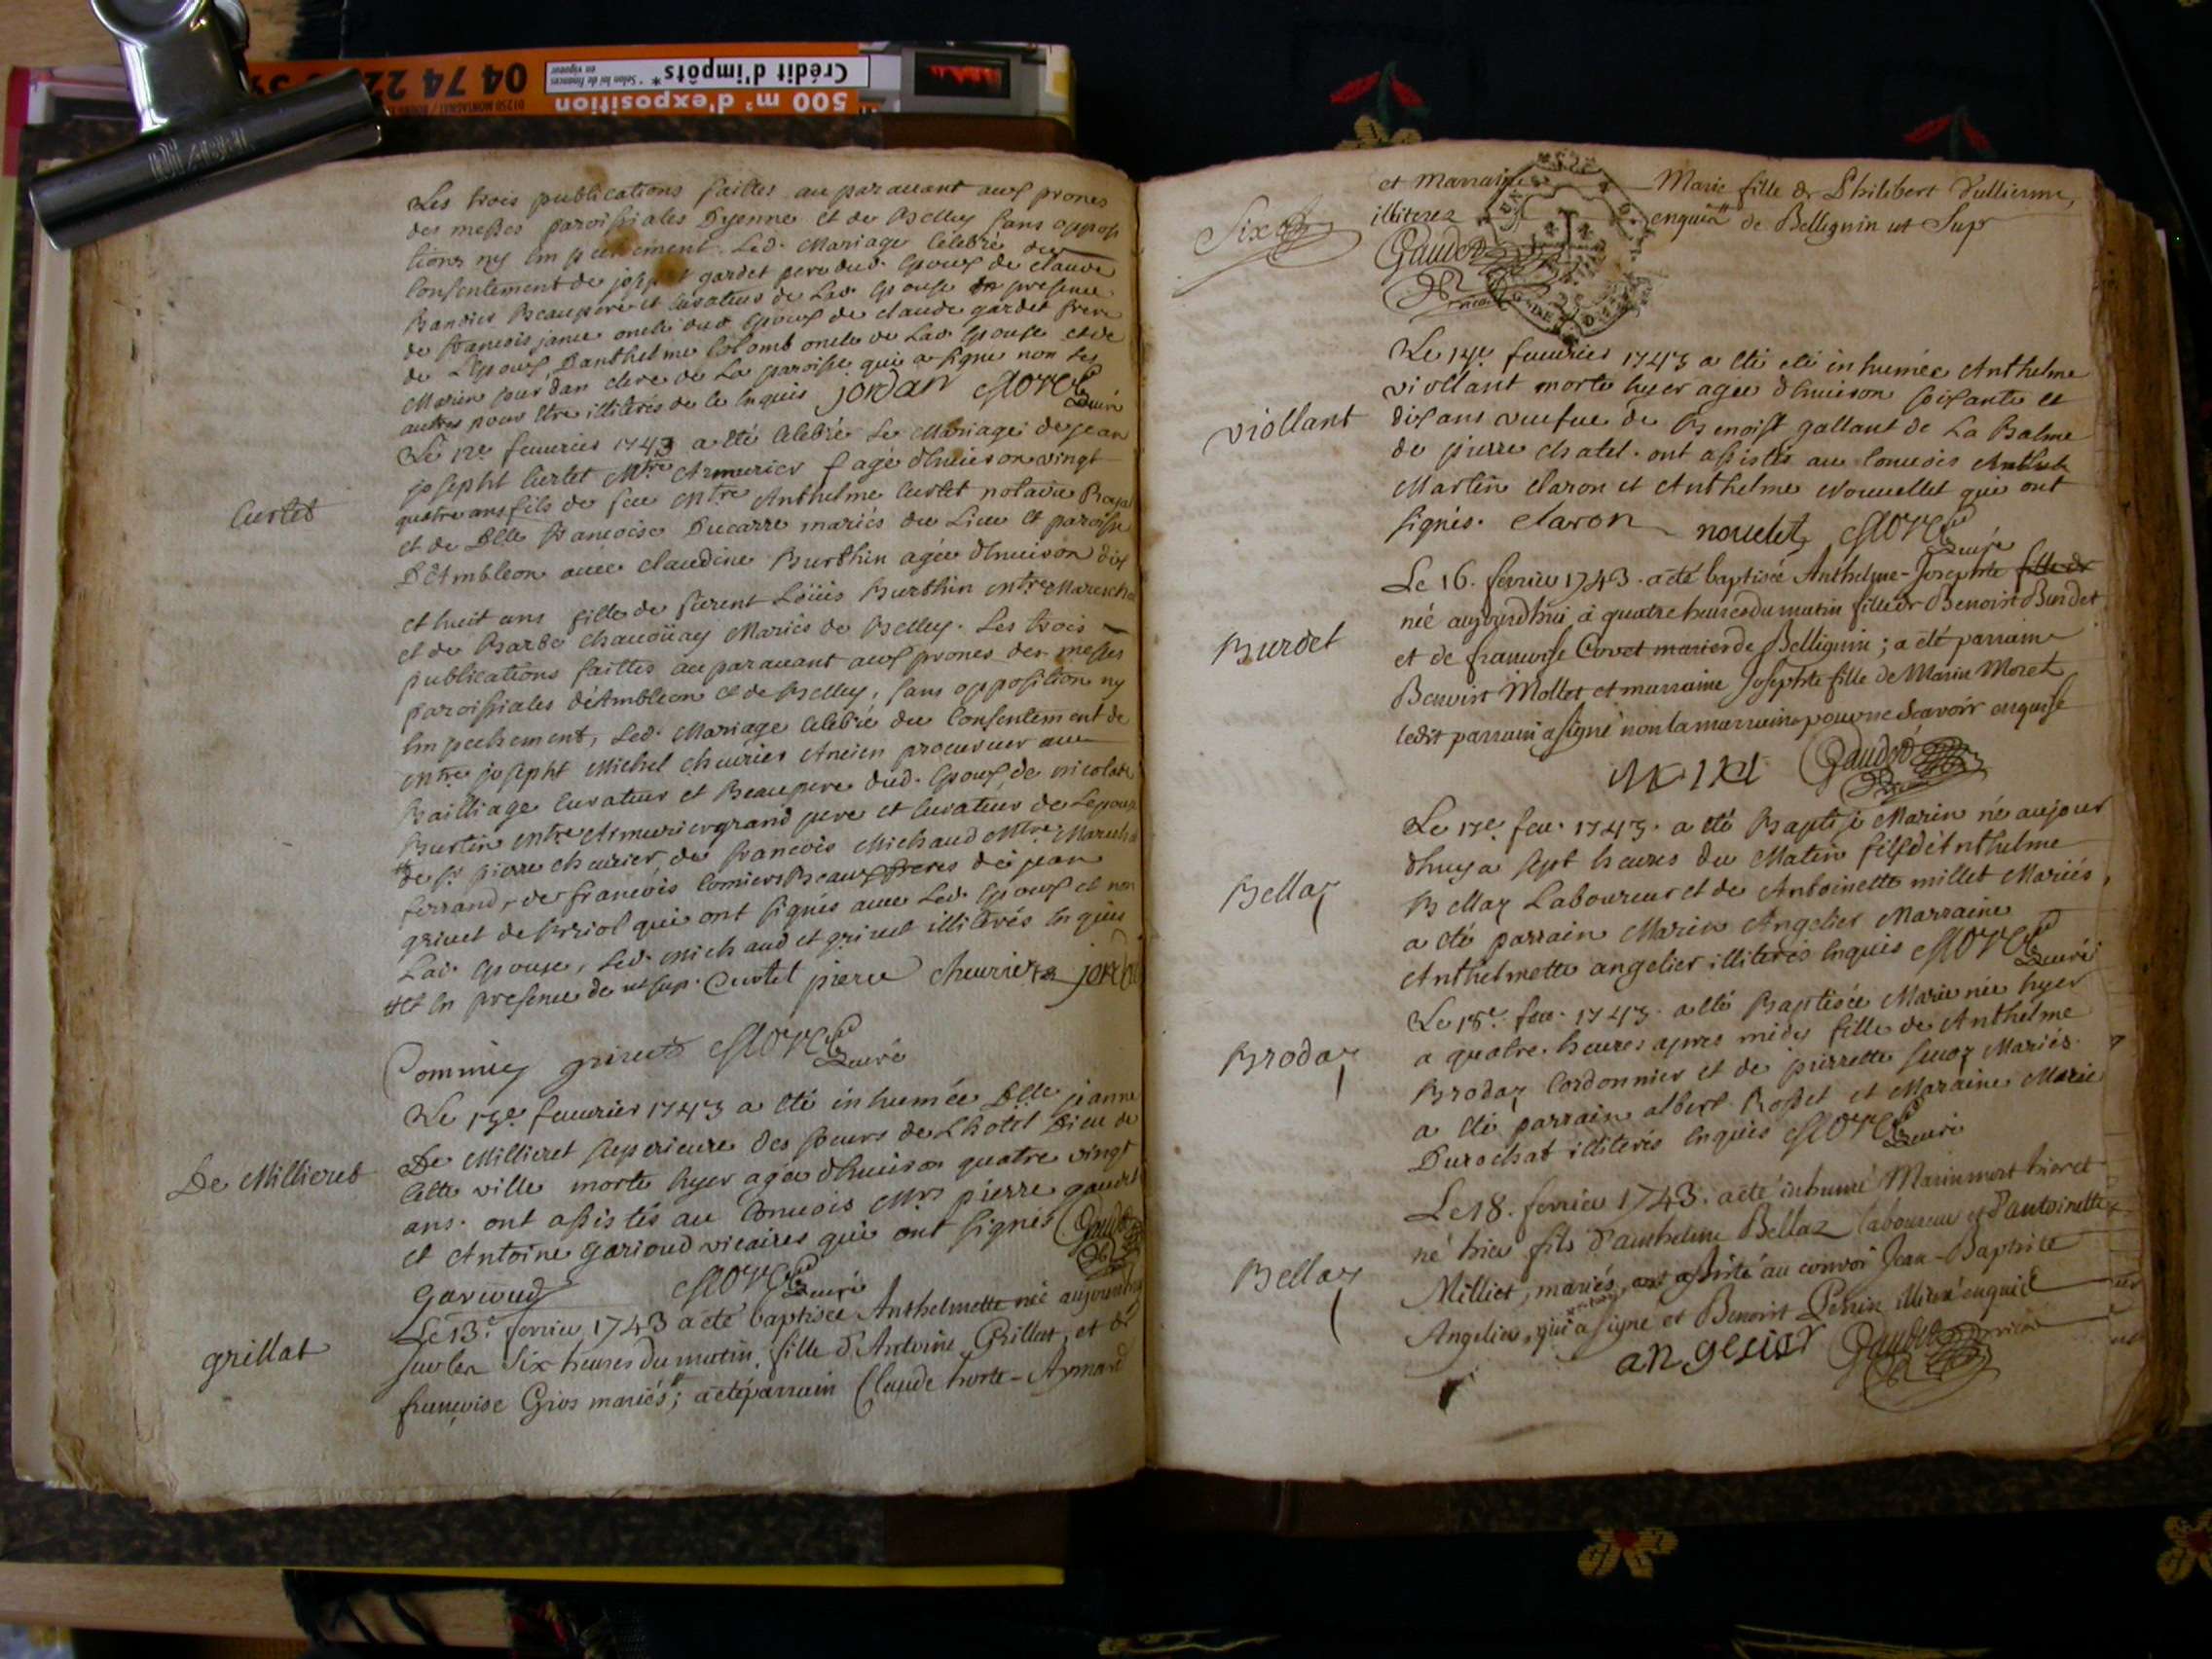 04 74 22
Crédit d'impôts*
* Selon loi de finances en vigueur
500 m² d'exposition
Les trois publications faittes auparauant aux prones
des messes paroissiales Dyenne et de Belley sans opposi
tions ny Empechement. Led. Mariage Celebré du
Consentement de joseph gardet pere dud. Epoux de claude
Beaupere et Curateur de Lad. Epouse En presence
de francois janet oncle dud Epoux de claude gardet frere
de L'Epoux, D'anthelme Colomb oncle de Lad. Epouse et de
Marin jourdan clerc de La paroisse qui a signe non Les
autres pour Etre illiterés de ce Enquis jordan curé
Curtet
Le 12e feuurier 1743 a eté Celebré Le Mariage de jean
josepht Curtet Mtre Armurier agé d'Enuiron vingt
quatre ans fils de feu Mtre Anthelme Curtet notaire Royal
et de Dlle francoise Ducarre mariés du Lieu et paroisse
D'Ambleon auec claudine Burthin agée d'Enuiron dix
et huit ans fille de Laurent Loüis Burthin Mtre Marechal
et de Barbe chauoüay Mariés de Belley. Les trois
publications faittes auparauant aux prones des messes
paroissiales d'Ambleon et de Belley, sans opposition ny
Empechement, Led. Mariage Celebré du Consentement de
Mtre josepht Michel cheurier Ancien procureur au
Bailliage Curateur et Beaupere dud. Epoux de nicolas
Burtin Mtre Armurier grand pere et Curateur de Lepouse
de Sr pierre cheurier, de francois Michaud Mtre Marechal
ferrand, de francois Comiers Beaux freres de jean
griuet de Briol qui ont signés auec Led. Epoux et non
Lad. Epouse, Led. Michaud et griuet illiterés Enquis
Et En presence de ut sup. Curtet piere cheurier jordan
Commier griuet curé
De Millieret
Le 13e feuurier 1743 a eté inhumée Dlle jeanne
De Millieret superieure des soeurs de L'hotel Dieu de
Cette ville morte hyer agée d'Enuiron quatre vingt
ans. ont assistés au Conuois Mrs pierre gaudet
et Antoine garioud vicaires qui ont signés Gaudet
garioud curé
grillat
Le 13e fevrier 1743 a eté baptisée Anthelmette née aujourdhuy
sur les six heures du matin, fille d'Antoine Grillat, et de
françoise Gros mariés; a eté parrain Claude Aymard
Six
et marraine Marie fille de Philibert Vullierme,
illiterez enquis de Bellignin ut Sup
Gaudet
viollant
Le feuurier 1743 a eté inhumée Anthelme
viollant morte hyer agée d'Enuiron soixante et
dix ans veufue de Benoist gallant de La Balme
de pierre chatel. ont assistés au Conuois
Martin claron et Anthelme Nouuellet qui ont
signés. claron nouelet curé
Burdet
Le 16. fevrier 1743. a eté baptisée Anthelme-Josephte fille de
née aujourdhui à quatre heures du matin fille de Benoist Burdet
et de françoise Covet mariés de Bellignin; a eté parrain
Benoist Mollot et marraine Josephte fille de Marin Moret
ledit parrain a signé non la marraine pour ne Sçavoir enquise
Gaudet
Bellaz
Le 17e feu. 1743. a eté Baptisé Marin né aujour
d'huy a sept heures du Matin fils d'Anthelme
Bellaz Laboureur et de Antoinette millet Mariés,
a eté parrain Marin Angelier Marraine
Anthelmette angelier illiterés Enquis curé
Brodaz
Le 18e. feu. 1743. a eté Baptisée Marie née hyer
a quatre heures apres midy fille de Anthelme
Brodaz Cordonnier et de pierrette Mariés.
a eté parrain albert Rosset et Maraine Marie
Durochat illiterés Enquis curé
Bellaz
Le 18. fevrier 1743. a eté inhumé Marin mort hier et
né hier fils d'anthelme Bellaz laboureur et d'antoinette
Milliet, mariés, ont assisté au convoi Jean-Baptiste
Angelier, qui a signé et Benoist Perrin illiteré enquis
angelier Gaudet vicaire